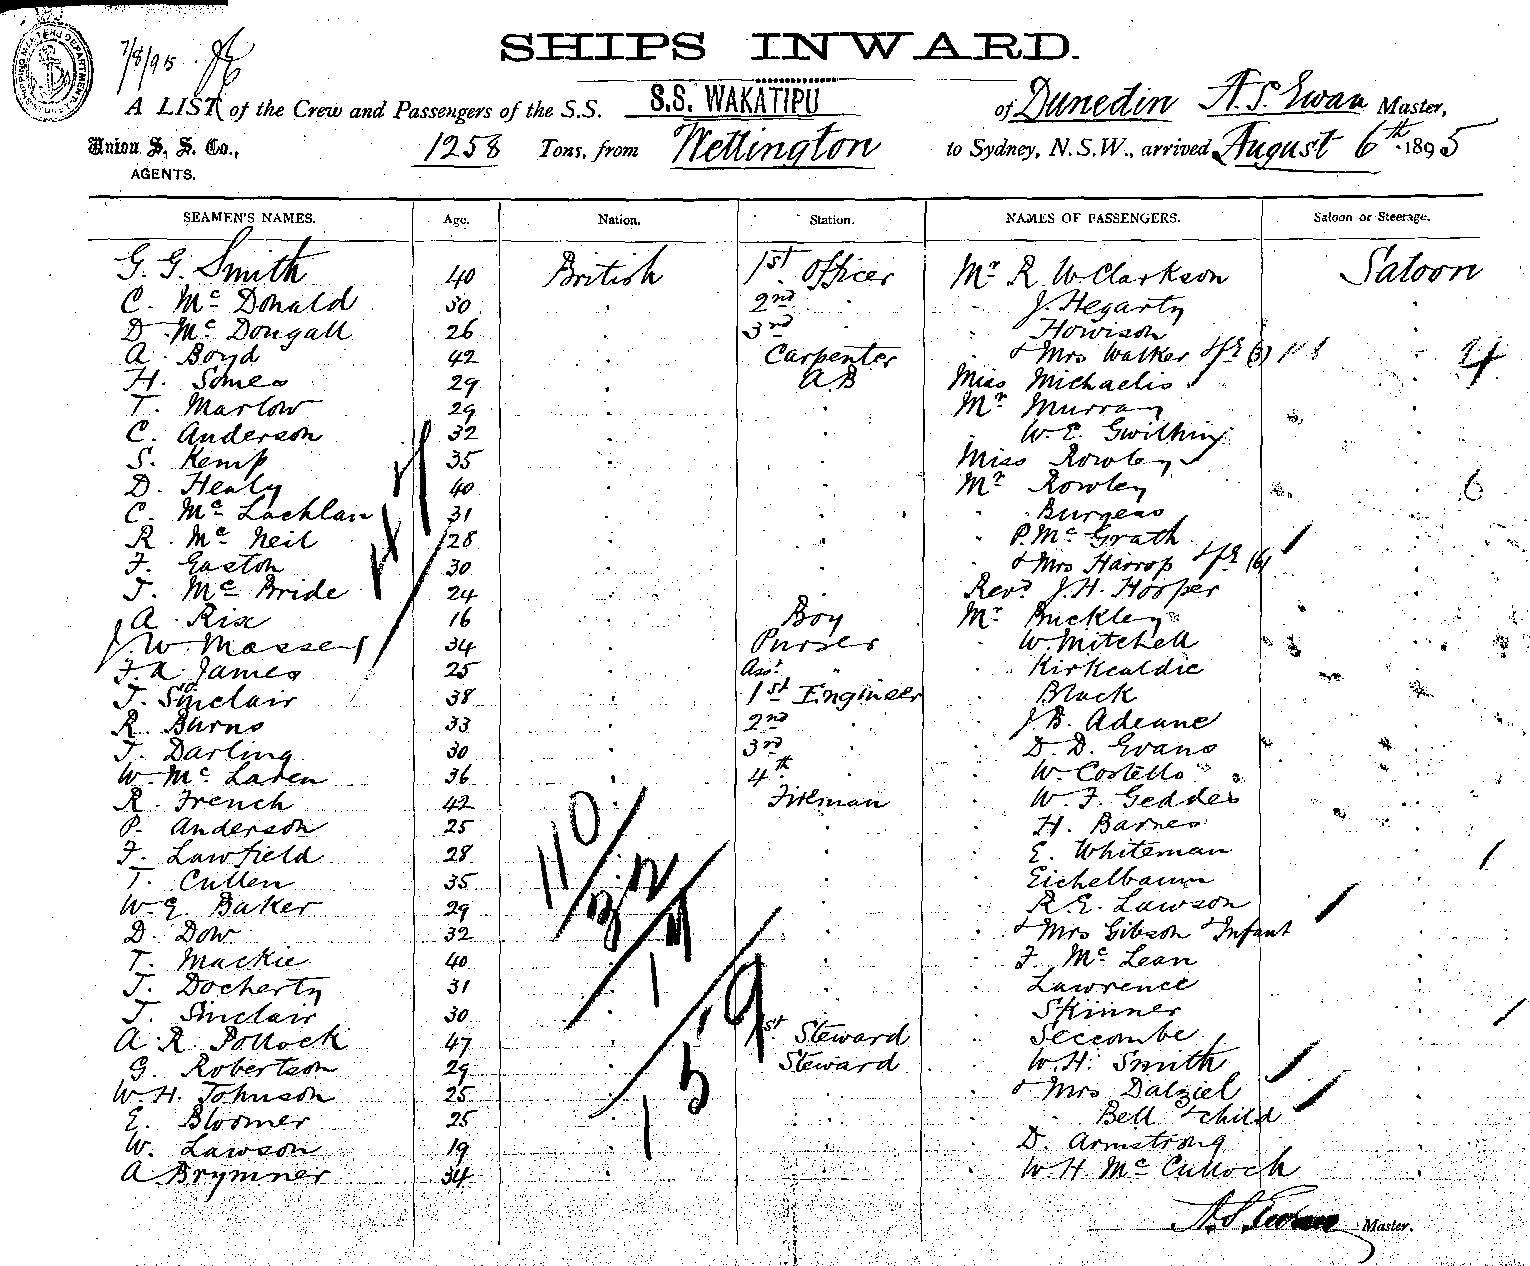 7/8/95
SHIPS INWARD.
A LIST of the Crew and Passengers of the S.S. S.S. WAKATIPU of Dunedin A. S. Ewan Master,
Union S. S. Co., 1258 Tons, from Wellington to Sydney, N.S.W., arrived August 6th 1895
AGENTS.
SEAMEN'S NAMES. Age. Nation. Station. NAMES OF PASSENGERS. Saloon or Steerage.
G. G. Smith 40 British 1st Officer Mr R W. Clarkson Saloon
C. Mc Donald 30 2nd J. Hegarty
D. Mc Dougall 26 3rd Howison
A. Boyd 42 Carpenter & Mrs Walker (3)
H. Somes 29 A B Miss Michaelis
T. Marlow 29 Mr Murray
C. Anderson 32 W. E.
S. Kemp 35 Miss Rowley
D. Healy 40 Mr Rowley
C. Mc Lachlan 31 Burgess
R. Mc Neil 28 P. Mc Grath
F. Easton 30 & Mrs Harrop (6)
T. Mc Bride 24 Revd J. H. Hosper
A. Rix 16 Boy Mr Buckley
J. W. Massey 34 Purser W. Mitchell
F. A. James 25 Asst " Kirkcaldie
J. Sinclair 38 1st Engineer Black
R. Burns 33 2nd J. B. Adeane
J. Darling 30 3rd D. D. Evans
W. Mc Laren 36 4th W. Costello
R. French 42 Fireman W. F. Geddes
P. Anderson 25 H. Barnes
F. Lawfield 28 E. Whiteman
T. Cullen 35 Eichelbaum
W. E. Baker 29 R. E. Lawson
D. Dow 32 & Mrs Gibson & Infant
T. Mackie 40 F. Mc Lean
J. Docherty 31 Lawrence
J. Sinclair 30 Skinner
A. R. Pollock 47 1st Steward Seccombe
G. Robertson 29 Steward W. H. Smith
W. H. Johnson 25 & Mrs Dalziel
E. Bloomer 25 Bell & child
W. Lawson 19 D. Armstrong
A Brymner 34 W H Mc Culloch
A. S. Ewan Master.